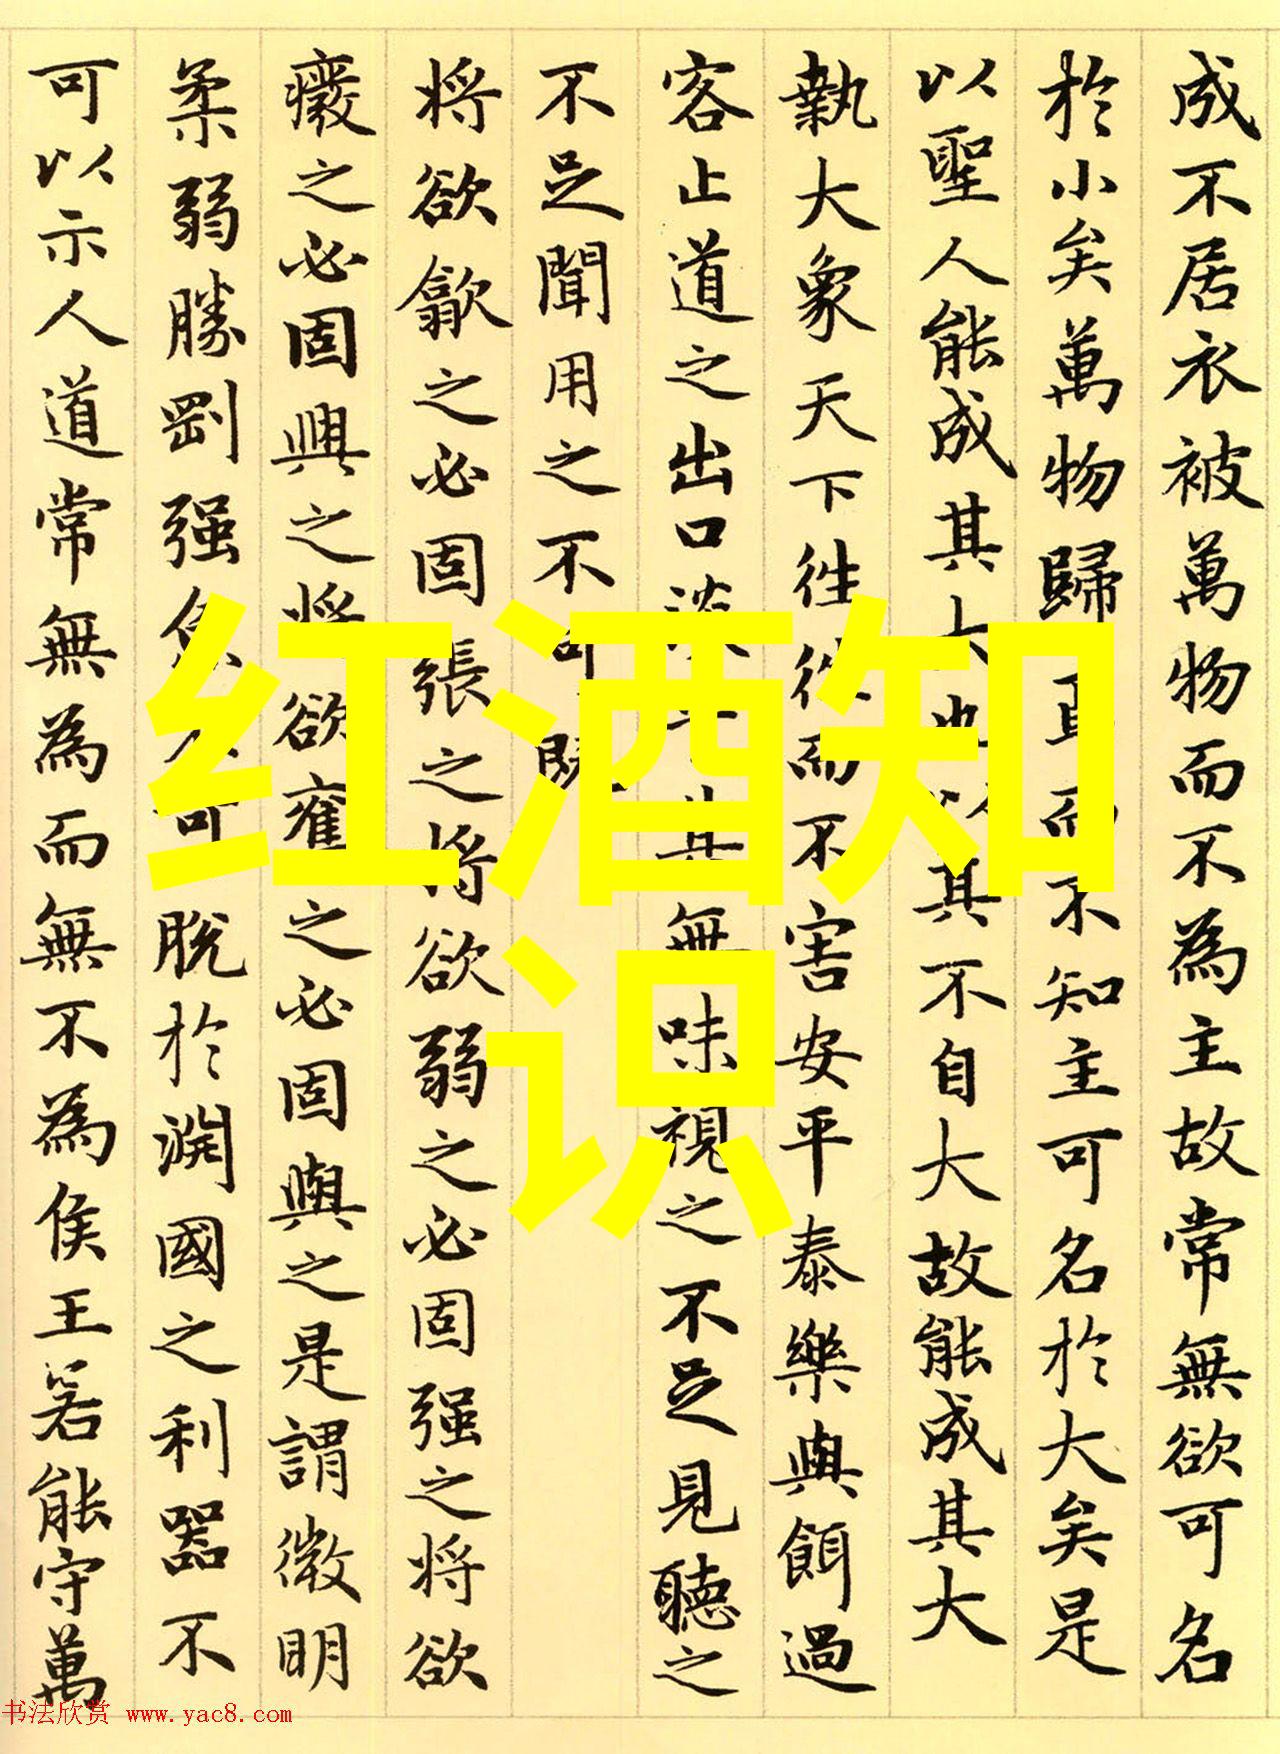 成不居衣被萬物而不為主故常無欲可名
於小矣萬物歸而不知主可名於大矣是
以聖人能成其大也以其不自大故能成其大
執大象天下往往而不害安平泰樂與餌過
客止道之出口淡其無味視之不足見聽之
不足聞用之不
將欲歙之必固張之將欲弱之必固强之將欲
廢之必固興之將欲奪之必固與之是謂微明
柔弱勝剛强魚可脫於淵國之利器不
可以示人道常無為而無不為侯王若能守萬
红酒知
识
书法欣赏 www.yac8.com